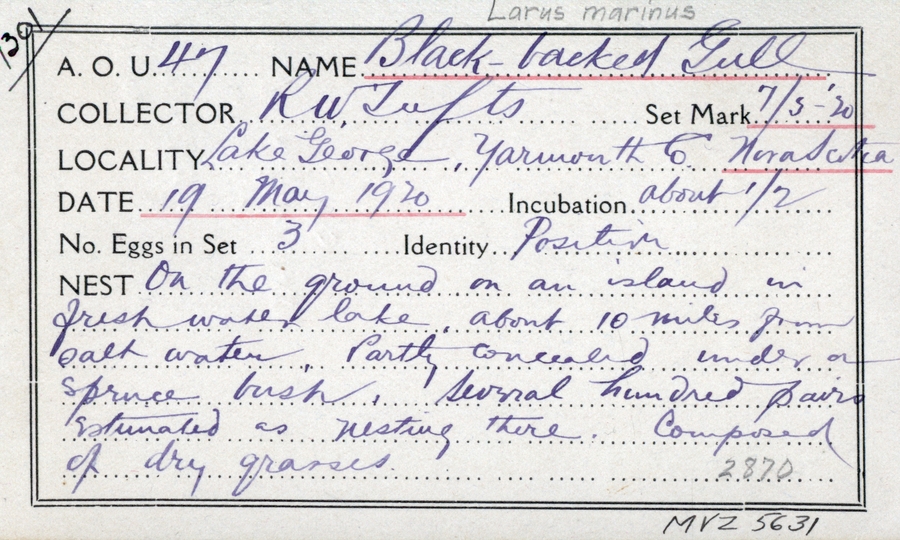 Larus marinus
30/
A. O. U. 47 NAME Black-backed Gull
COLLECTOR R W. Tufts Set Mark 7/3-'20
LOCALITY Lake George, Yarmouth Co Nova Scotia
DATE 19 May 1920 Incubation about 1/2
No. Eggs in Set 3 Identity Position
NEST On the ground on an island in
fresh water lake, about 10 miles from
salt water, Partly concealed under a
spruce bush. Several hundred pairs
Estimated as nesting there. Composed
of dry grasses.
2870
MVZ 5631